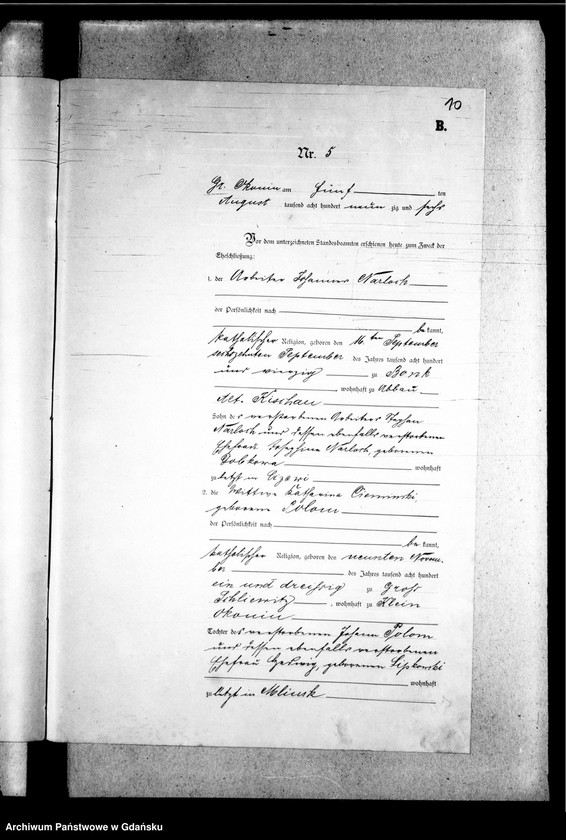 10
B.
Nr. 5
Gr. Okonin am fünf ten
August tausend acht hundert neun zig und sechs
Vor dem unterzeichneten Standesbeamten erschienen heute zum Zweck der
Eheschließung:
1. der Arbeiter Johannes Narloch
der Persönlichkeit nach
be kannt,
katholischer Religion, geboren den 16 ten September
sechszehnten September des Jahres tausend acht hundert
und vierzig zu Bonk
, wohnhaft zu Abbau
Alt Kischau
Sohn des verstorbenen Arbeiters Stephan
Narloch und dessen ebenfalls verstorbene
Ehefrau Josephina Narloch, geborenen
wohnhaft
zuletzt in
2. die Wittwe Katharina Cieminski
geborene Polom
der Persönlichkeit nach
be kannt,
katholischer Religion, geboren den neunten Novem-
ber des Jahres tausend acht hundert
ein und dreißig zu Groß
Schliewitz, wohnhaft zu Klein
Okonin
Tochter des verstorbenen Johann Polom
und dessen ebenfalls verstorbenen
Ehefrau Hedwig, geborenen Lipkowski
wohnhaft
zuletzt in Mlinsk
Archiwum Państwowe w Gdańsku